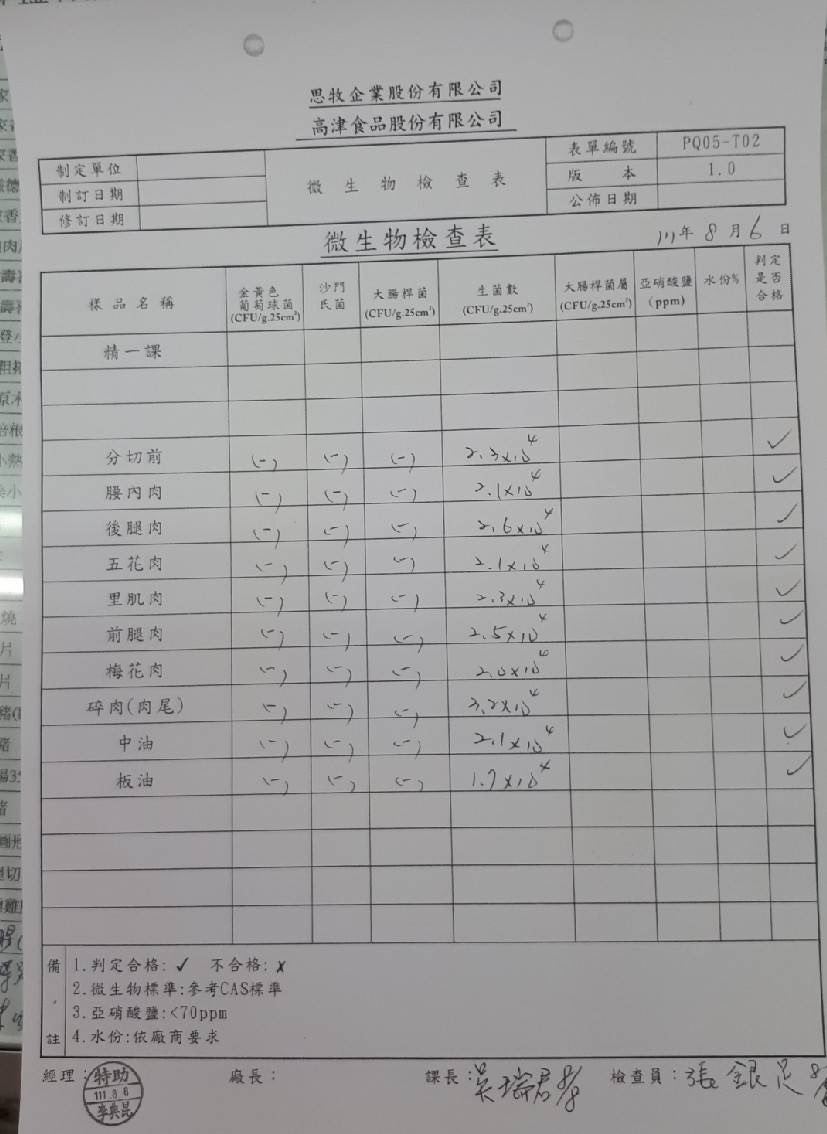 思牧企業股份有限公司
高津食品股份有限公司
制定單位 微生物檢查表 表單編號 PQ05-T02
制訂日期 版本 1.0
修訂日期 公佈日期
微生物檢查表
111年 8 月 6 日
樣品名稱 金黃色葡萄球菌(CFU/g.25cm²) 沙門氏菌 大腸桿菌(CFU/g.25cm²) 生菌數(CFU/g.25cm²) 大腸桿菌屬(CFU/g.25cm²) 亞硝酸鹽(ppm) 水份% 判定是否合格
精一課
分切前 (-) (-) (-) 2.3×10⁴ ✓
腰內肉 (-) (-) (-) 2.1×10⁴ ✓
後腿肉 (-) (-) (-) 2.6×10⁴ ✓
五花肉 (-) (-) (-) 2.1×10⁴ ✓
里肌肉 (-) (-) (-) 2.3×10⁴ ✓
前腿肉 (-) (-) (-) 2.5×10⁴ ✓
梅花肉 (-) (-) (-) ✓
碎肉(肉尾) (-) (-) (-) 3.2×10⁴ ✓
中油 (-) (-) (-) 2.1×10⁴ ✓
板油 (-) (-) (-) 1.7×10⁴ ✓
備註
1.判定合格:✓ 不合格:✗
2.微生物標準:參考CAS標準
3.亞硝酸鹽:<70ppm
4.水份:依廠商要求
經理: 特助 111.8.8 李典昆 廠長: 課長:吳瑞君 8/8 檢查員:張銀足